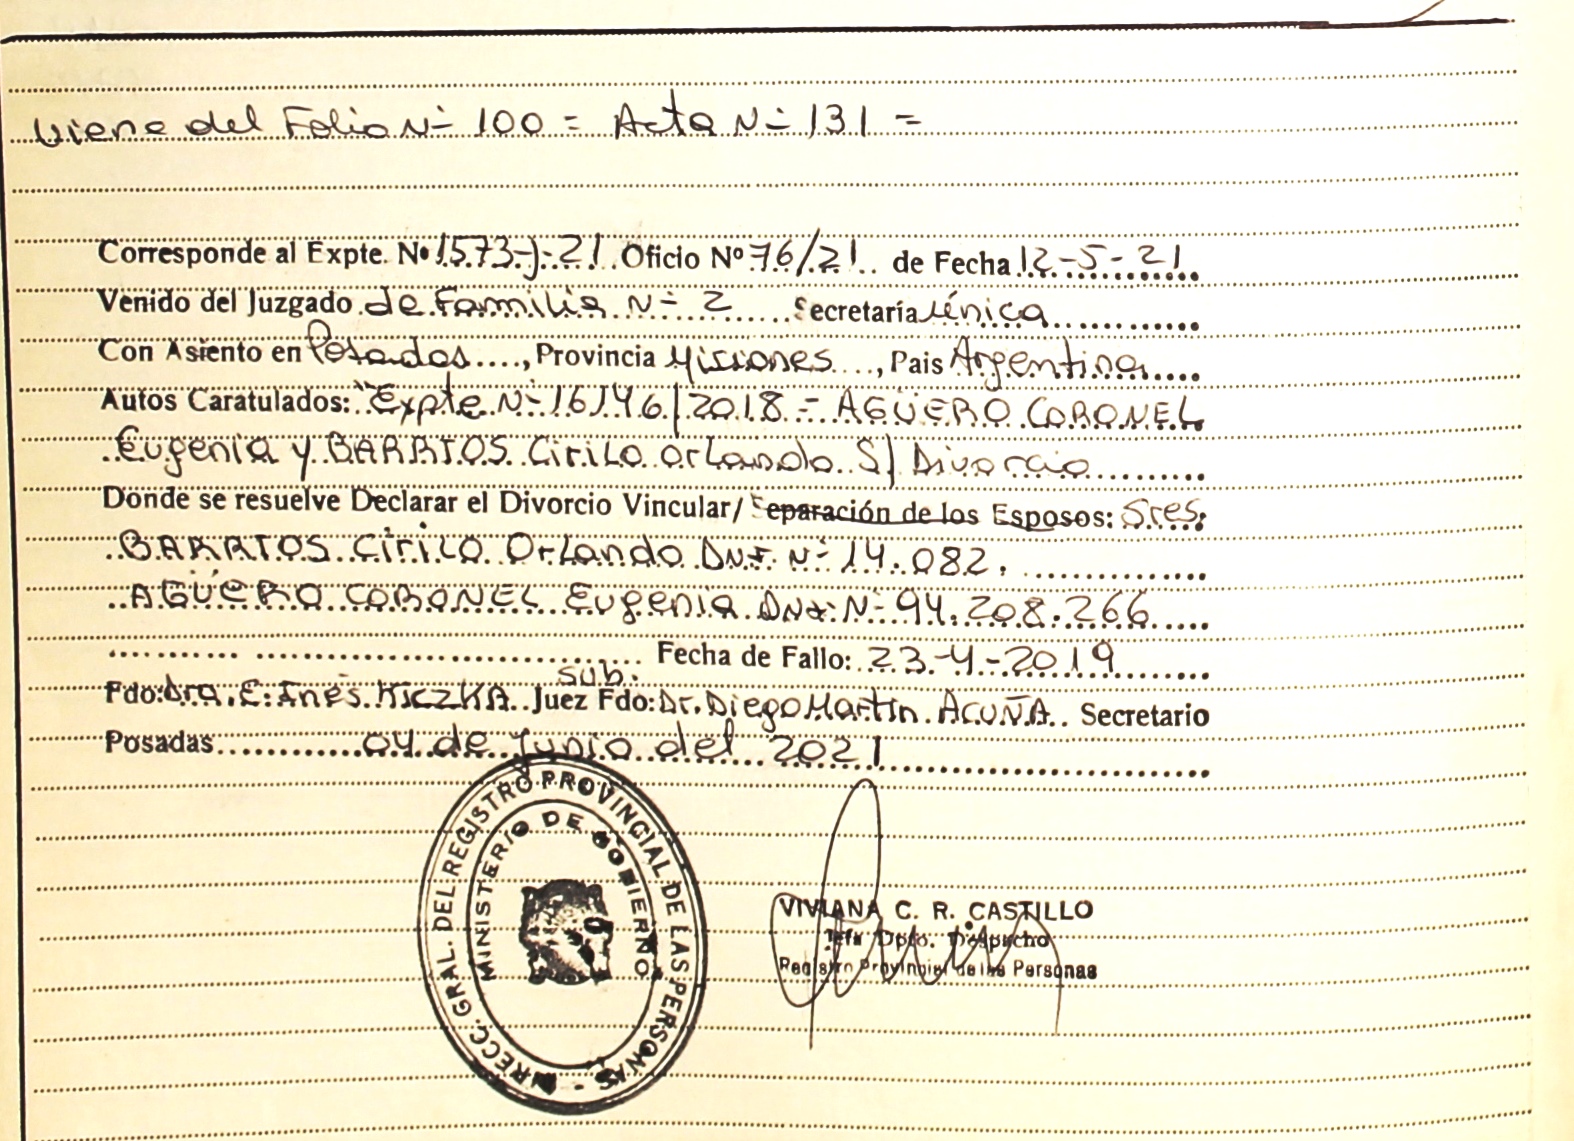 Viene del Folio Nº 100 = Acta Nº 131 =
Corresponde al Expte. Nº 1573-J-21 Oficio Nº 76/21 de Fecha 12-5-21
Venido del Juzgado de Familia Nº 2 Secretaría única
Con Asiento en Posadas, Provincia Misiones, Pais Argentina
Autos Caratulados: "Expte Nº 16146/2018 - AGÜERO CORONEL
Eugenia y BARRIOS Cirilo Orlando S/ Divorcio
Donde se resuelve Declarar el Divorcio Vincular/ Separación de los Esposos: Sres:
BARRIOS Cirilo Orlando DNI Nº 14.082.
AGÜERO CORONEL Eugenia DNI Nº 94.208.266
Fecha de Fallo: 23-4-2019
sub.
Fdo: Dra. E. Inés KICZKA Juez Fdo: Dr. Diego Martín ACUÑA Secretario
Posadas 04 de Junio del 2021
DIRECC. GRAL. DEL REGISTRO PROVINCIAL DE LAS PERSONAS
MINISTERIO DE GOBIERNO
VIVIANA C. R. CASTILLO
Jefa Dpto. Despacho
Registro Provincial de las Personas